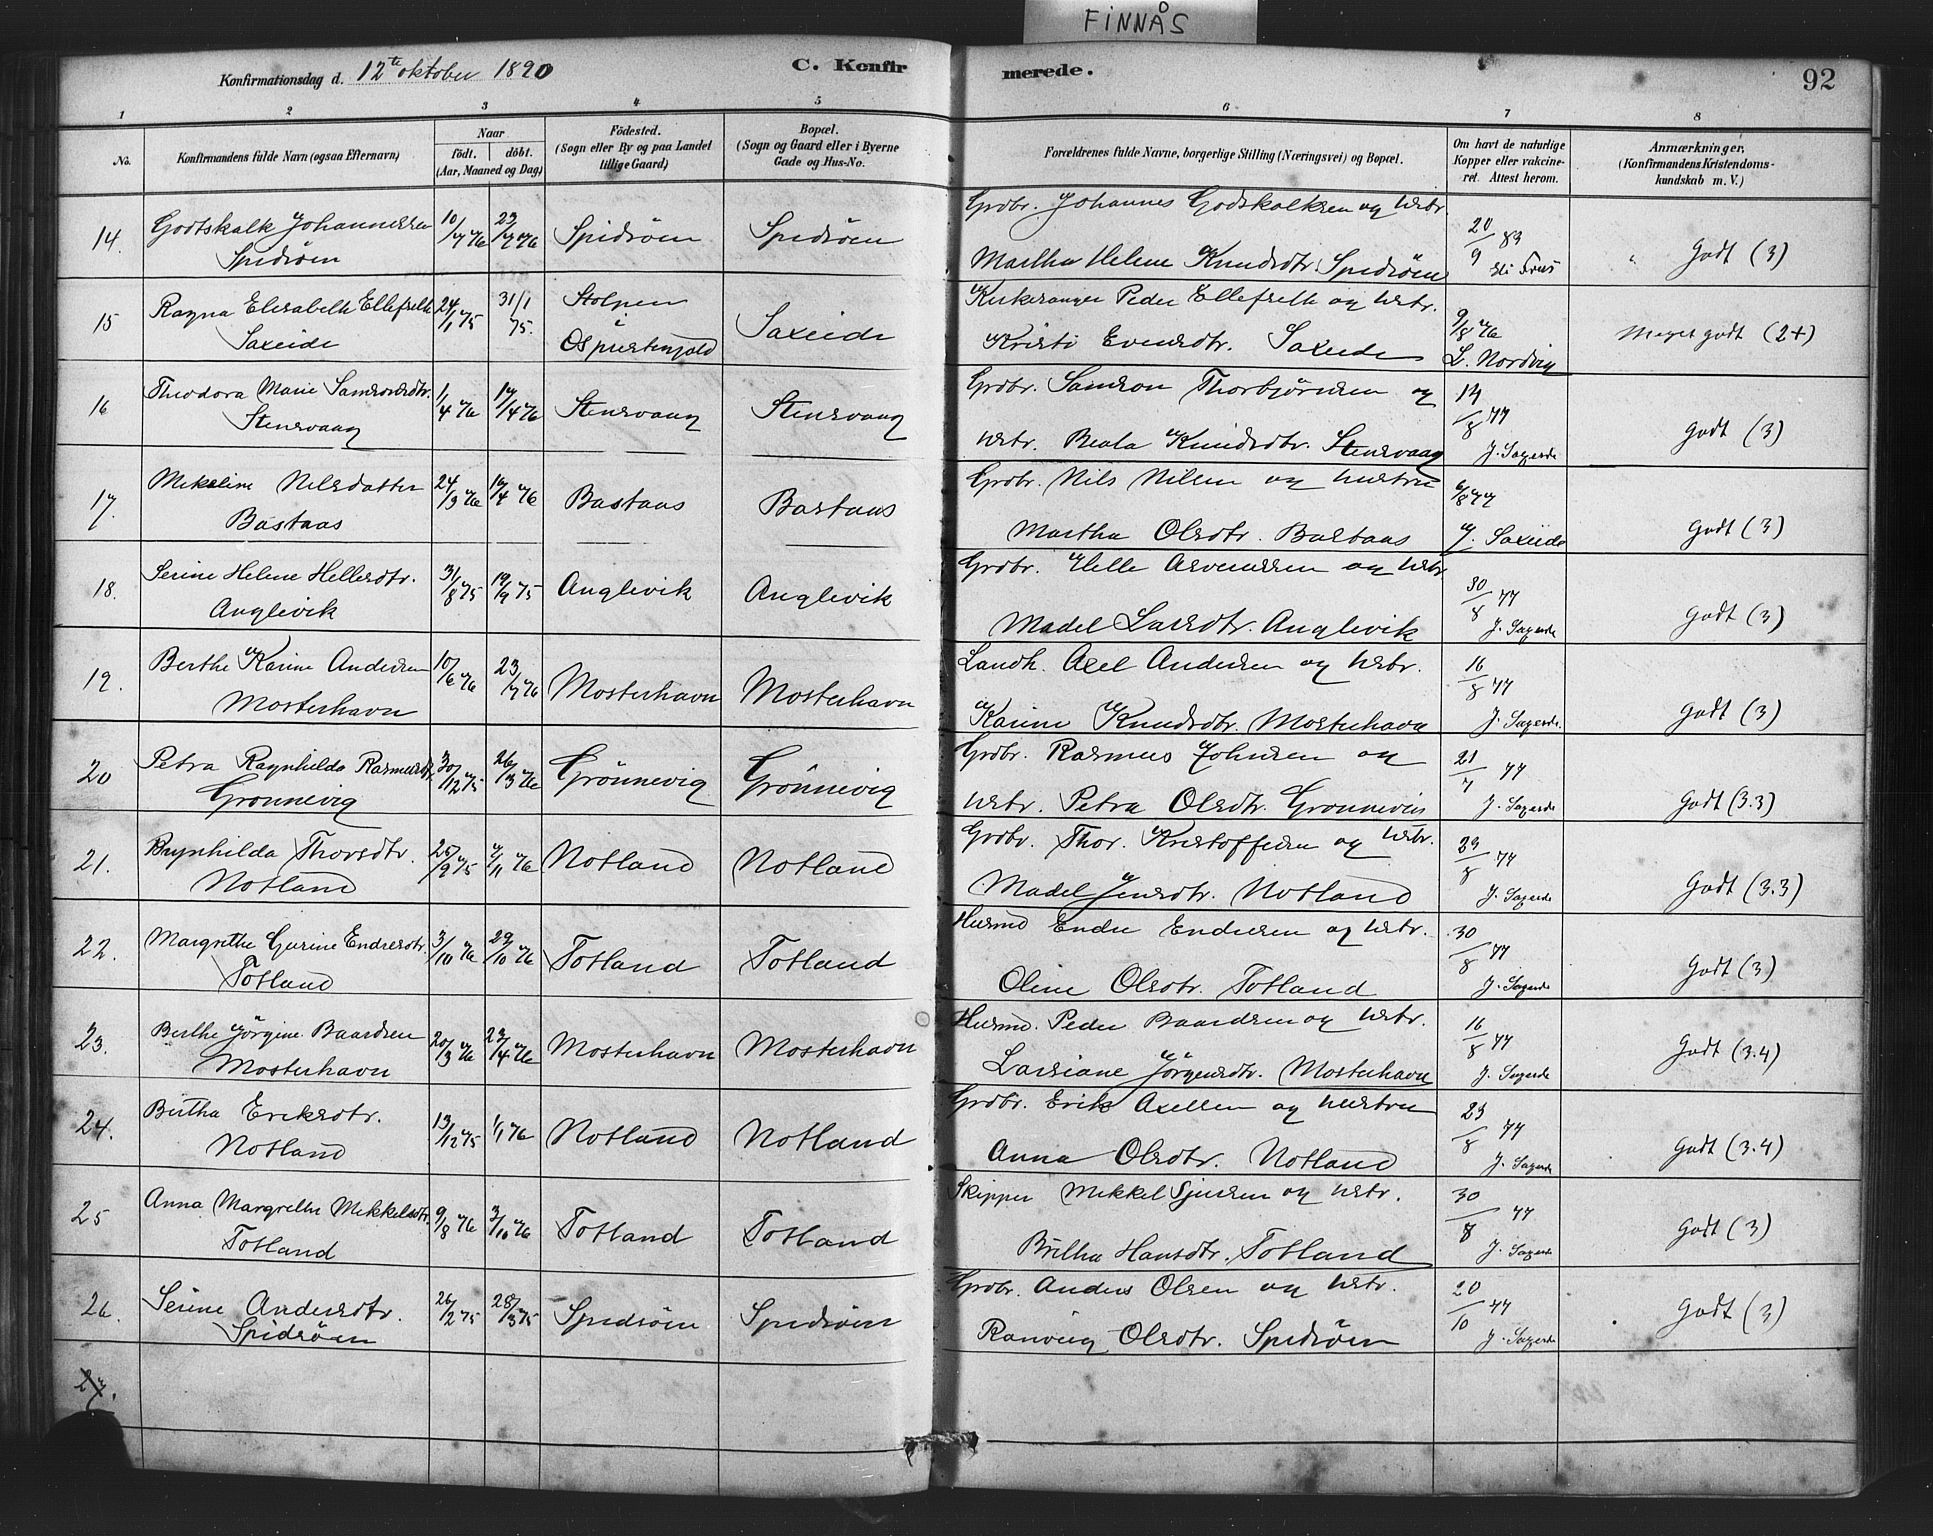 FINNÅS
Konfirmationsdag d. 12te oktober 1890 C. Konfirmerede. 92
1 2 3 4 5 6 7 8
No.
Konfirmandens fulde Navn (ogsaa Efternavn)
Naar
födt. döbt.
(Aar, Maaned og Dag)
Födested.
(Sogn eller By og paa Landet
tillige Gaard)
Bopæl.
(Sogn og Gaard eller i Byerne
Gade og Hus-No.
Forældrenes fulde Navne, borgerlige Stilling (Næringsvei) og Bopæl.
Om havt de naturlige
Kopper eller vakcine-
ret. Attest herom.
Anmærkninger,
(Konfirmandens Kristendoms-
kundskab m. V.)
14. Godtskalk Johannessen 10/7 76 23/7 76 Spidsöen Spidsöen Grdbr. Johannes Godskalksen og Hstr. 20/9 83 Godt (3)
Spidsöen Martha Helene Knudsdtr. Spidsöen
15 Ragna Elisabeth Ellefseth 24/1 75 31/1 75. Stolpen i Os prestegjeld Saxeide Kirkesanger Peder Ellefseth og Hstr. 9/8 76 Meget godt (2+)
Saxeide Kristi Evensdtr. Saxeide L. Nordvig
16 Theodora Marie Samsonsdtr. 1/4 76 17/4 76 Stensvaag Stensvaag Grdbr. Samson Thorbjörnsen og 14/8 77 Godt (3)
Stensvaag Hstr. Beata Knudsdtr. Stensvaag J. Sagerde
17. Mekeline Nilsdatter 24/3 76 17/4 76 Bastaas Bastaas Grdbr. Nils Nilsen og Hustru 6/8 77 Godt (3)
Bastaas Martha Olsdtr. Bastaas J. Saxeide
18. Serine Helene Hellesdtr. 31/8 75 19/9 75 Anglevik Anglevik Grdbr. Helle Asvensen og Hstr 30/8 77 Godt (3)
Anglevik Madel Larsdtr. Anglevik J. Sagerde
19. Berthe Karine Andersen 10/6 76 23/7 76 Mosterhavn Mosterhavn Landh. Axel Andersen og Hstr. 16/8 77 Godt (3)
Mosterhavn Karine Knudsdtr. Mosterhavn J. Sagerde.
20 Petra Ragnhilda Rasmusdtr. 30/12 75 26/3 76 Grönnevig Grönnevig Grdbr. Rasmus Johnsen og 21/7 77 Godt (3.3)
Grönnevig Hstr. Petra Olsdtr. Grönnevig J. Sagerde
21. Brynhilda Thorsdtr. 25/9 75 Notland Notland Grdbr. Thor. Kristoffersen og Hstr. 29/8 77 Godt (3.3)
Notland Madel Jensdtr. Notland J. Sagerde
22. Margrethe Gurine Endresdtr. 3/10 76 29/10 76 Totland Totland Husmd Endre Endresen og Hstr. 30/8 77 Godt (3)
Totland Oline Olsdtr. Totland J. Sagerde
23. Berthe Jörgine Baardsen 20/3 76 23/4 76 Mosterhavn Mosterhavn Husmd. Peder Baardsen og Hstr. 16/8 77 Godt (3.4)
Mosterhavn Larsiane Jörgensdtr. Mosterhavn J. Sagerde
24. Birtha Eriksdtr. 13/12 75 1/1 76 Notland Notland Grdbr. Erik Axelsen og Hustru 23/8 77 Godt (3.4)
Notland Anna Olsdtr. Notland J. Sagerde
25 Anna Margrethe Mikkelsdtr. 9/8 76 3/10 76 Totland Totland Skipper Mikkel Sjursen og Hstr. 30/8 77 Godt (3)
Totland Britha Hansdtr. Totland J. Sagerde
26. Serine Andersdtr. 26/2 75 28/3 75 Spidsöen Spidsöen Grdbr. Anders Olsen og Hstr. 20/10 77 Godt (3)
Spidsöen Ranveig Olsdtr. Spidsöen J. Sagerde
27.